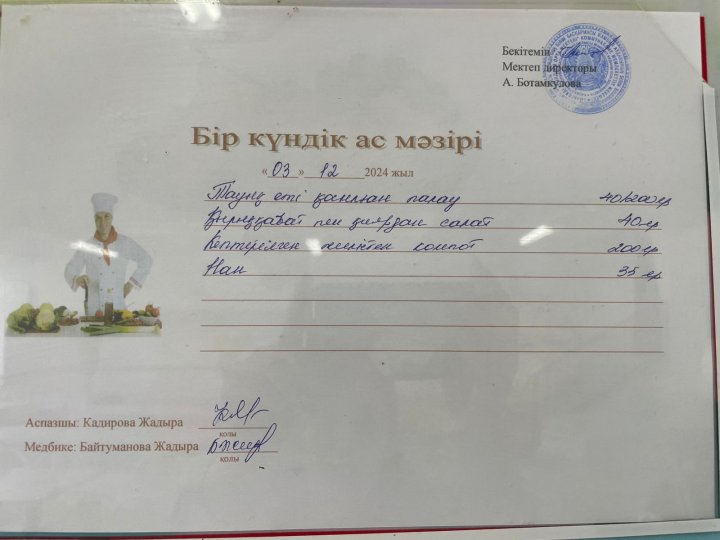 Бекітемін
Мектеп директоры
А. Ботамкулова
Бір күндік ас мәзірі
« 03 » 12 2024 жыл
Тауық еті қосылған палау 40/200 гр
Қырыққабат пен қиярдан салат 40 гр
Кептірілген жемістен компот 200 гр
Нан 35 гр
Аспазшы: Кадирова Жадыра
қолы
Медбике: Байтуманова Жадыра
қолы